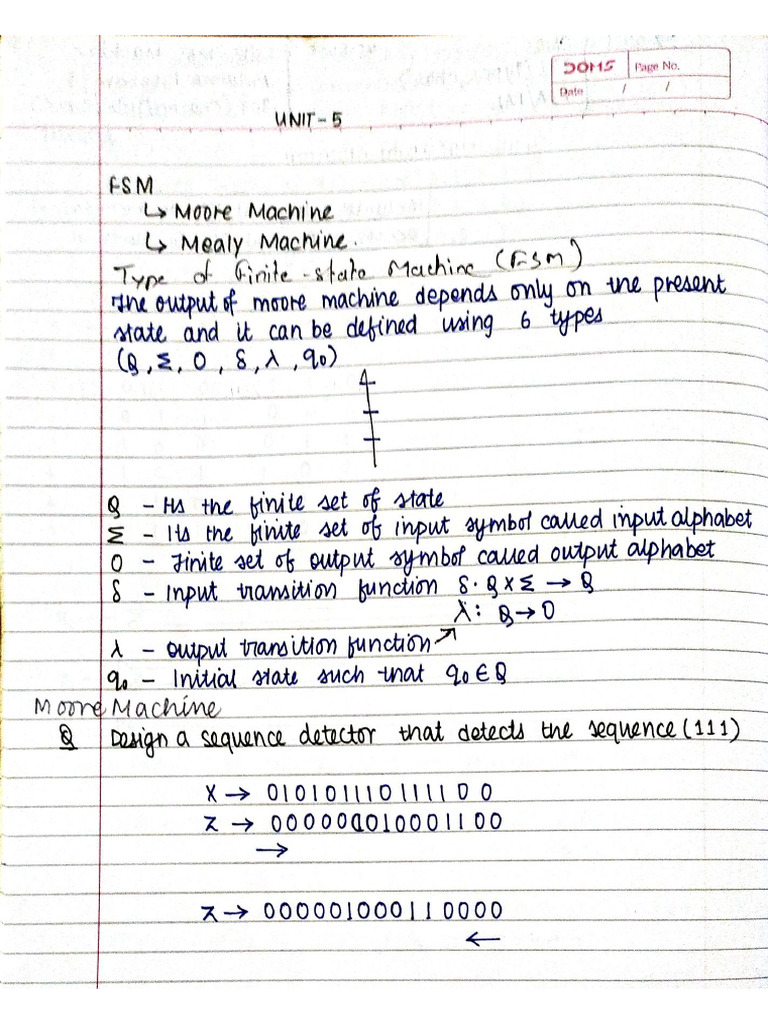 DOMS Page No.
Date / /
UNIT-5
FSM
↳ Moore Machine
↳ Mealy Machine.
Type of Finite-state Machine (FSM)
The output of moore machine depends only on the present
state and it can be defined using 6 types
(Q, Σ, O, δ, λ, q0)
Q - Its the finite set of state
Σ - Its the finite set of input symbol called input alphabet
O - Finite set of output symbol called output alphabet
δ - Input transition function δ. Q × Σ → Q
λ: Q → O
λ - output transition function ↗
q0 - Initial state such that q0 ∈ Q
Moore Machine
Q Design a sequence detector that detects the sequence (111)
X → 010101110111100
Z → 000000010001100
→
Z → 000001000110000
←